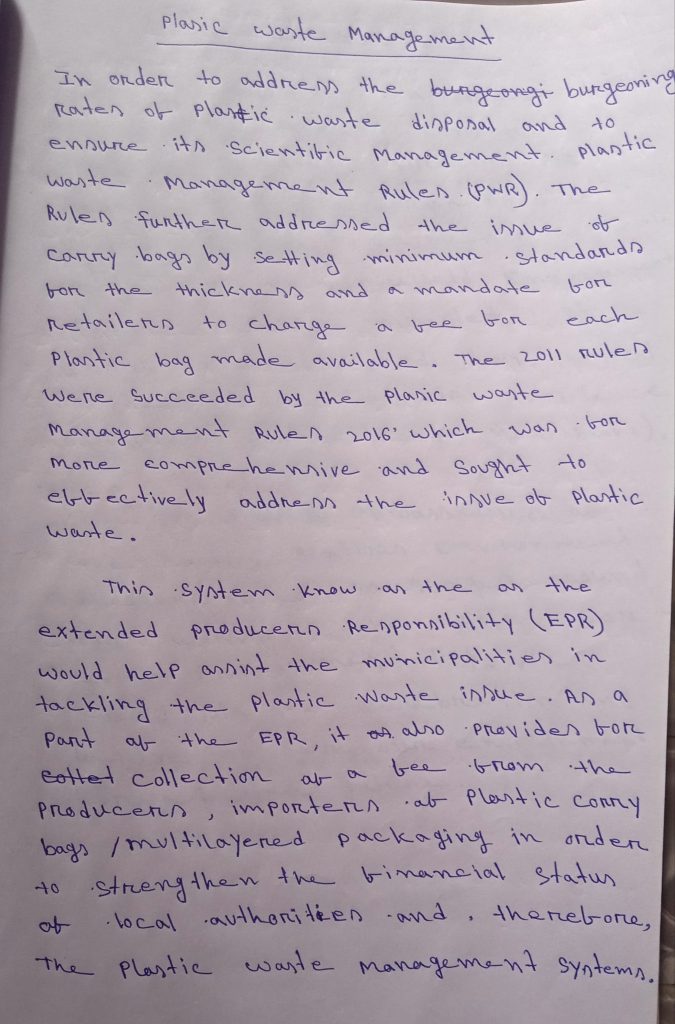 Plasic Waste Management
In order to address the burgeongi burgeoning
rates of Plastic waste disposal and to
ensure its Scientific Management. Plastic
waste Management Rules (PWR). The
Rules further addressed the issue of
carry bags by setting minimum standards
for the thickness and a mandate for
retailers to charge a fee for each
Plastic bag made available. The 2011 rules
were Succeeded by the Plasic waste
Management Rules 2016' which was for
more comprehensive and Sought to
effectively address the issue of Plastic
waste.
This system know as the as the
extended producers Responsibility (EPR)
would help assist the municipalities in
tackling the Plastic waste issue. As a
Part of the EPR, it as also provides for
collet collection of a fee from the
Producers, importers of Plastic carry
bags / multilayered packaging in order
to strengthen the financial status
of local authorities and, therefore,
The Plastic waste management systems.